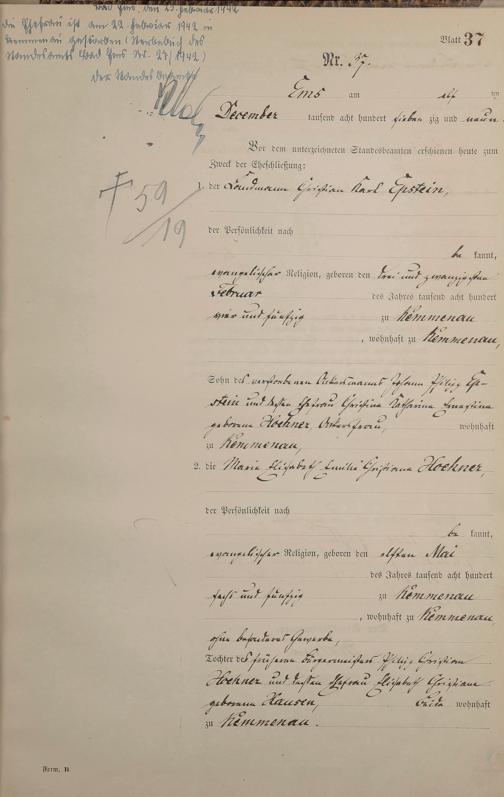 Bad Ems, den 25. Februar 1942
die Ehefrau ist am 22 Februar 1942 in
Kemmenau gestorben (Sterbebuch des
Standesamts Bad Ems Nr. 27/1942)
der Standesbeamte
Blatt 37
Nr. 37.
Ems am elf ten
December tausend acht hundert sieben zig und neun.
Vor dem unterzeichneten Standesbeamten erschienen heute zum
Zweck der Eheschließung:
1. der Landmann Christian Karl Epstein,
† 59/19
der Persönlichkeit nach
be kannt,
evangelischer Religion, geboren den drei und zwanzigsten
Februar des Jahres tausend acht hundert
vier und fünfzig zu Kemmenau
, wohnhaft zu Kemmenau,
Sohn des verstorbenen Ackersmanns Johann Philipp Ep-
stein und dessen Ehefrau Christina Katharina Ernestina
geborene Hoehner, wohnhaft
zu Kemmenau,
2. die Maria Elisabeth Emilie Christiana Hoehner,
der Persönlichkeit nach
be kannt,
evangelischer Religion, geboren den elften Mai
des Jahres tausend acht hundert
sechs und fünfzig zu Kemmenau
, wohnhaft zu Kemmenau,
ohne besonderes Gewerbe,
Tochter des früheren Bürgermeisters Philipp Christian
Hoehner und dessen Ehefrau Elisabeth Christiane
geborene Hausen, beide wohnhaft
zu Kemmenau.
Form. B.